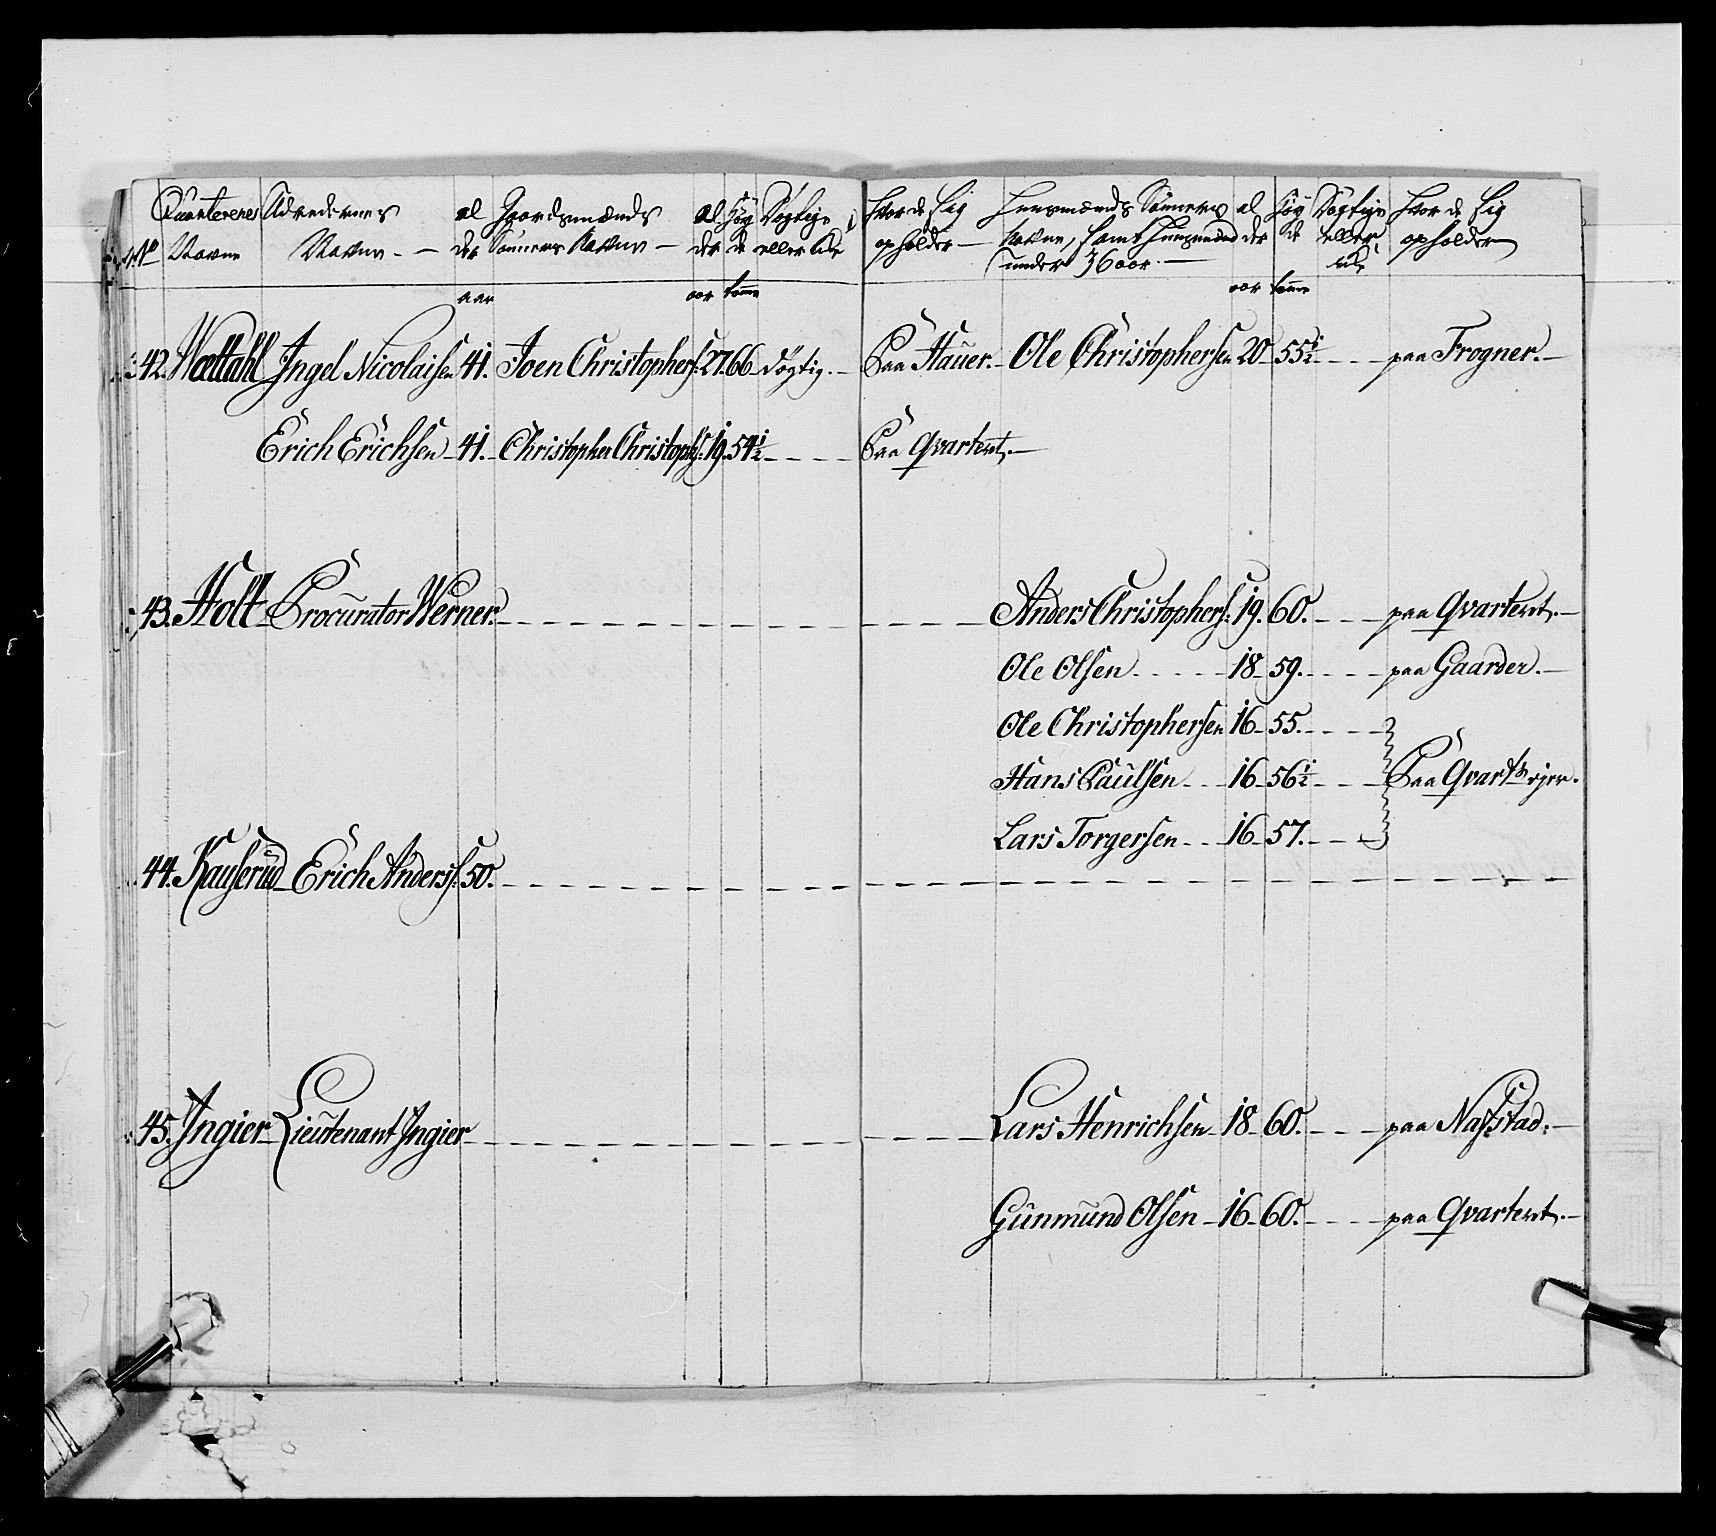 No Quarterenes Navne
Adredernes Navne
al der
Gaardmænds Sønners Navne
al der
Høy de
Dögtige eller ude
Hvor de sig opholder
Huusmænds Sønners Navne, samt Huusmænd under 36 aar
al der
Høy de
Dögtige eller ude
Hvor de sig opholder
aar aar tomme aar tomme
42. Wættahl Ingel Nicolaisen 41. Joen Christophers: 27. 66 Dögtig. Paa Hauer. Ole Christophersen 20 55½ paa Frogner.
Erich Erichsen 41. Christopher Christophs: 19. 54½ Paa Qvarteret.
43. Holt Procurator Werner. Anders Christophers: 19. 60. paa Qvarteret.
Ole Olsen 18 59. paa Gaarder.
Ole Christophersen 16 55.
Hans Paulsen 16 56½ Paa Qvart
Lars Torgersen 16 57.
44. Kauserud Erich Anderss: 50.
45. Ingier Lieutenant Ingier Lars Henrichsen 18 60. paa Nafstad.
Gunmund Olsen 16 60. paa Qvarteret.